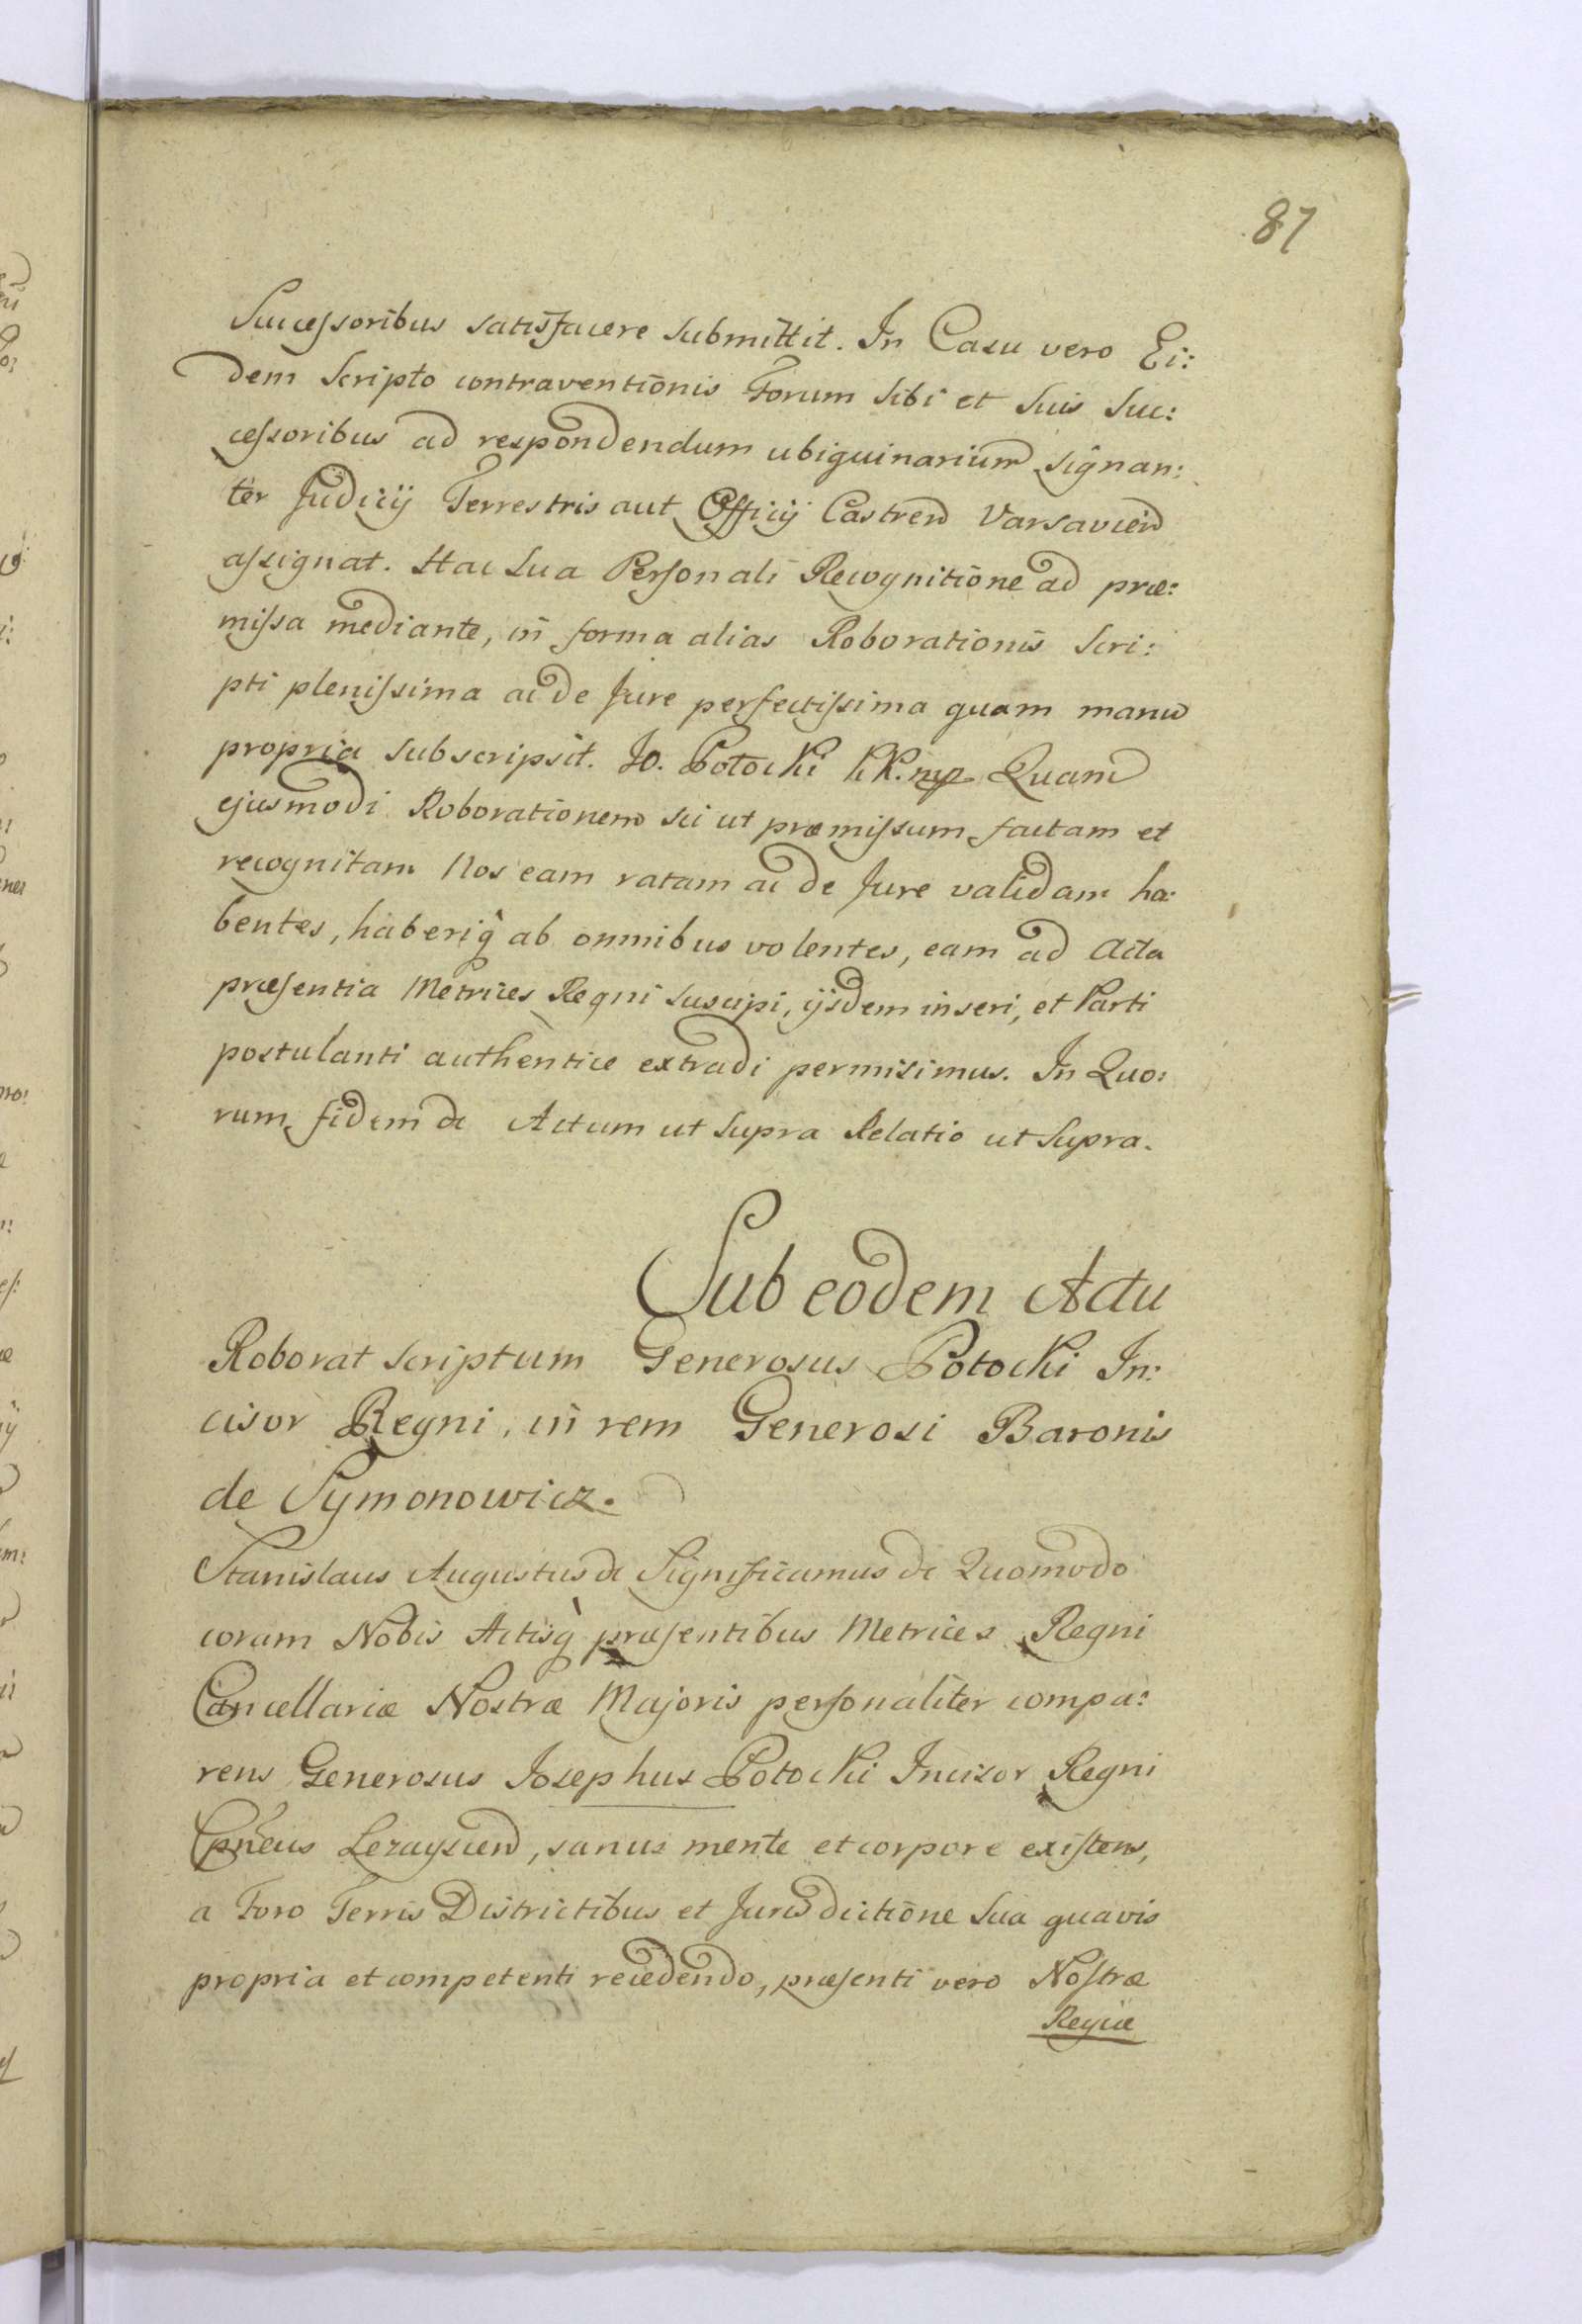 87
Successoribus satisfacere submittit. In Casu vero Ei:
dem Scripto contraventionis Forum sibi et suis Suc:
cessoribus ad respondendum ubiquinarium signan:
ter Judicij Terrestris aut Officij Castren Varsavien
assignat. Hac sua Personali Recognitione ad præ:
missa mediante, in forma alias Roborationis Scri:
pti plenissima ac de Jure perfectissima quam manu
propria subscripsit. Jo. Potocki KK. mp Quam
ejusmodi Roborationem sic ut præmissum factam et
recognitam Nos eam ratam ac de Jure validam ha:
bentes, haberiq̀ ab omnibus volentes, eam ad Acta
præsentia Metrices Regni suscipi, ijsdem inseri, et Parti
postulanti authentice extradi permisimus. In Quo:
rum fidem &c Actum ut supra Relatio ut supra.
Sub eodem Actu
Roborat scriptum Generosus Potocki In:
cisor Regni, in rem Generosi Baronis
de Symonowicz.
Stanislaus Augustus &c Significamus &c Quomodo
coram Nobis Actisq̀ præsentibus Metrices Regni
Cancellariæ Nostræ Majoris personaliter compa:
rens Generosus Josephus Potocki Incisor Regni
Cpneus Lezaysien, sanus mente et corpore existens,
a Foro Terris Districtibus et Jurisdictione sua quavis
propria et competenti recedendo, præsenti vero Nostræ
Regiæ